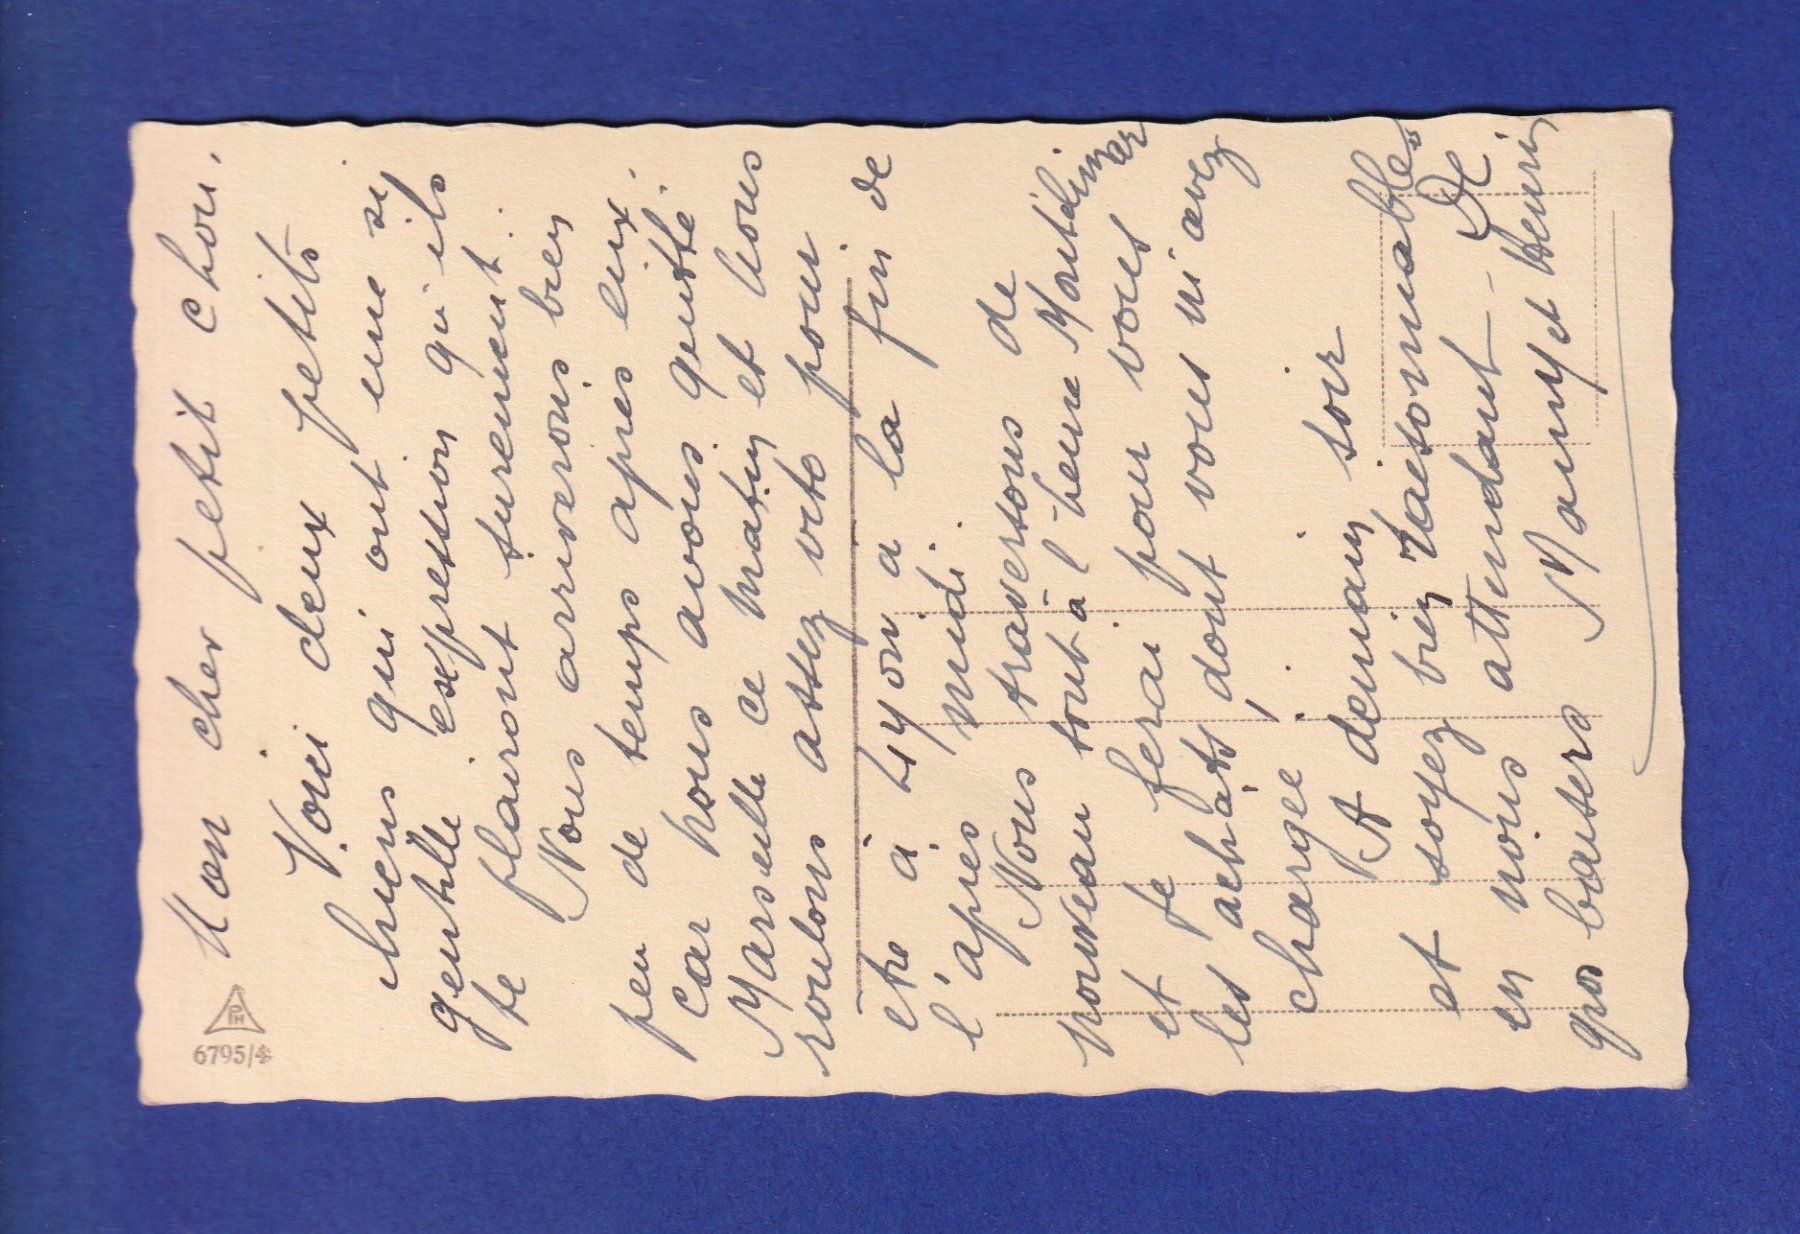 Mon cher petit chou,
Voici deux petits
chiens qui ont une si
gentille expression qu'ils
te plairont surement.
Nous arriverons bien
peu de temps apres eux.
car nous avons quitté
Marseille ce matin et nous
roulons assez vite pour
etre à Lyon à la fin de
l'apres midi.
Nous traversons de
nouveau tout à l'heure Montélimar
et je ferai pour vous
les achats dont vous m'avez
chargée.
A demain soir
et soyez bien raisonnable
en nous attendant - De
gros baisers Mamy et Henri
PH
6795/4